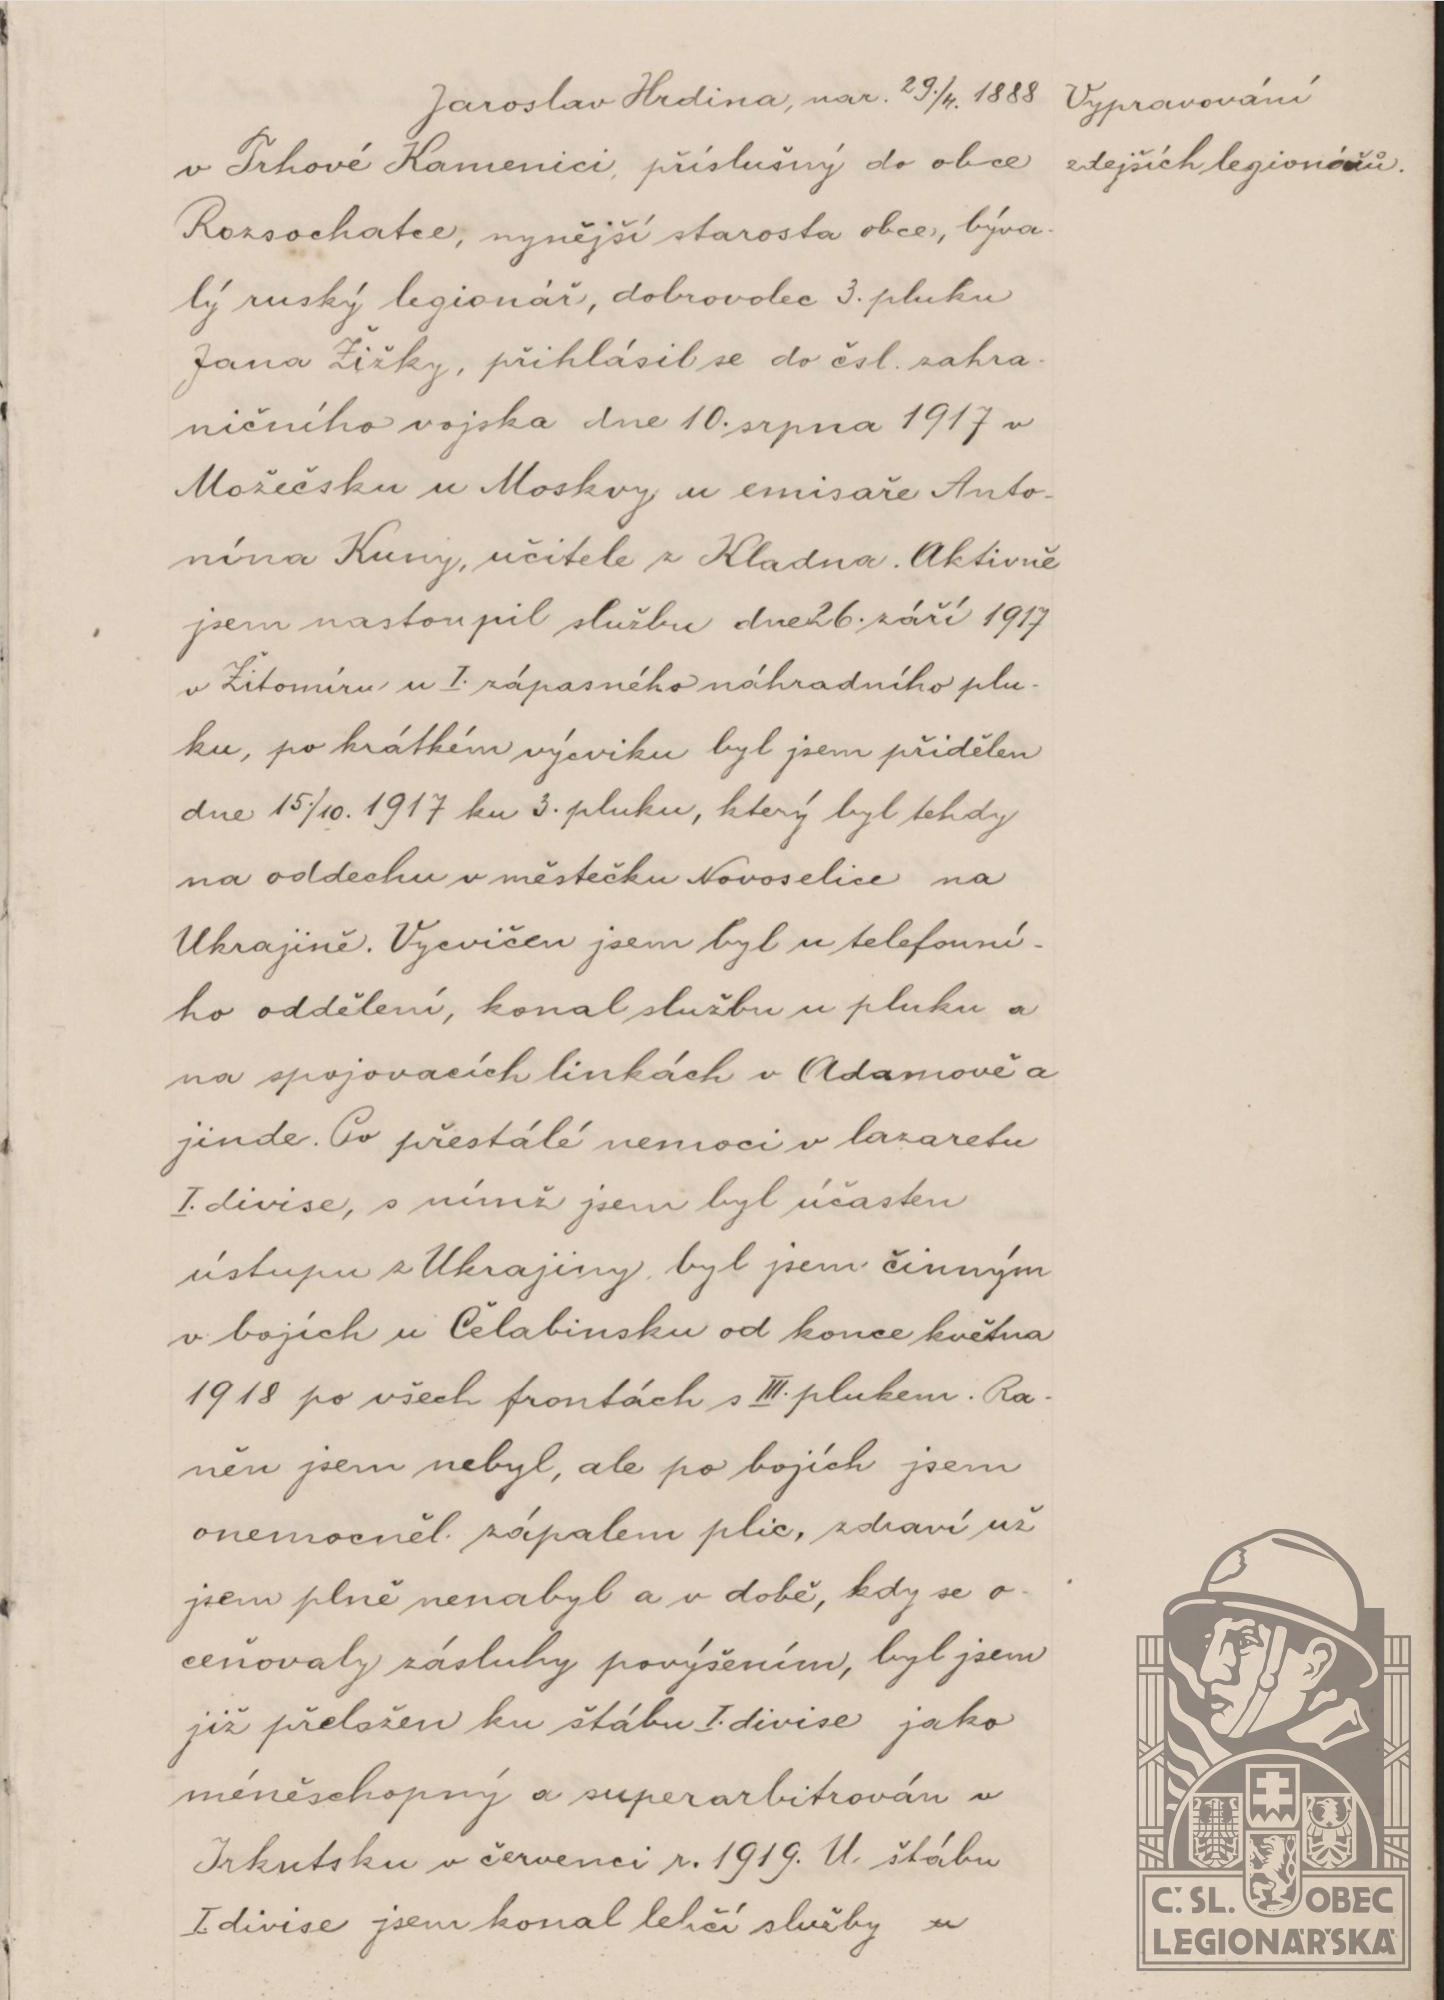 Jaroslav Hrdina, nar. 29./4. 1888
v Trhové Kamenici, příslušný do obce
Rozsochatce, nynější starosta obce, býva-
lý ruský legionář, dobrovolec 3. pluku
Jana Žižky, přihlásil se do čsl. zahra-
ničního vojska dne 10. srpna 1917 v
Možečsku u Moskvy u emisaře Anto-
nína Kuny, učitele z Kladna. Aktivně
jsem nastoupil službu dne 26. září 1917
v Žitomíru u I. zápasného náhradního plu-
ku, po krátkém výcviku byl jsem přidělen
dne 15./10. 1917 ku 3. pluku, který byl tehdy
na oddechu v městečku Novoselice na
Ukrajině. Vycvičen jsem byl u telefonní-
ho oddělení, konal službu u pluku a
na spojovacích linkách v Adamově a
jinde. Po přestálé nemoci v lazaretu
I. divise, s nímž jsem byl účasten
ústupu z Ukrajiny, byl jsem činným
v bojích u Čelabinsku od konce května
1918 po všech frontách s III. plukem. Ra-
něn jsem nebyl, ale po bojích jsem
onemocněl zápalem plic, zdraví už
jsem plně nenabyl a v době, kdy se o-
ceňovaly zásluhy povýšením, byl jsem
již přeložen ku štábu I. divise jako
méněschopný a superarbitrován v
Irkutsku v červenci r. 1919. U štábu
I. divise jsem konal lehčí služby u
Vypravování
zdejších legionářů.
Č.SL. OBEC
LEGIONÁŘSKÁ